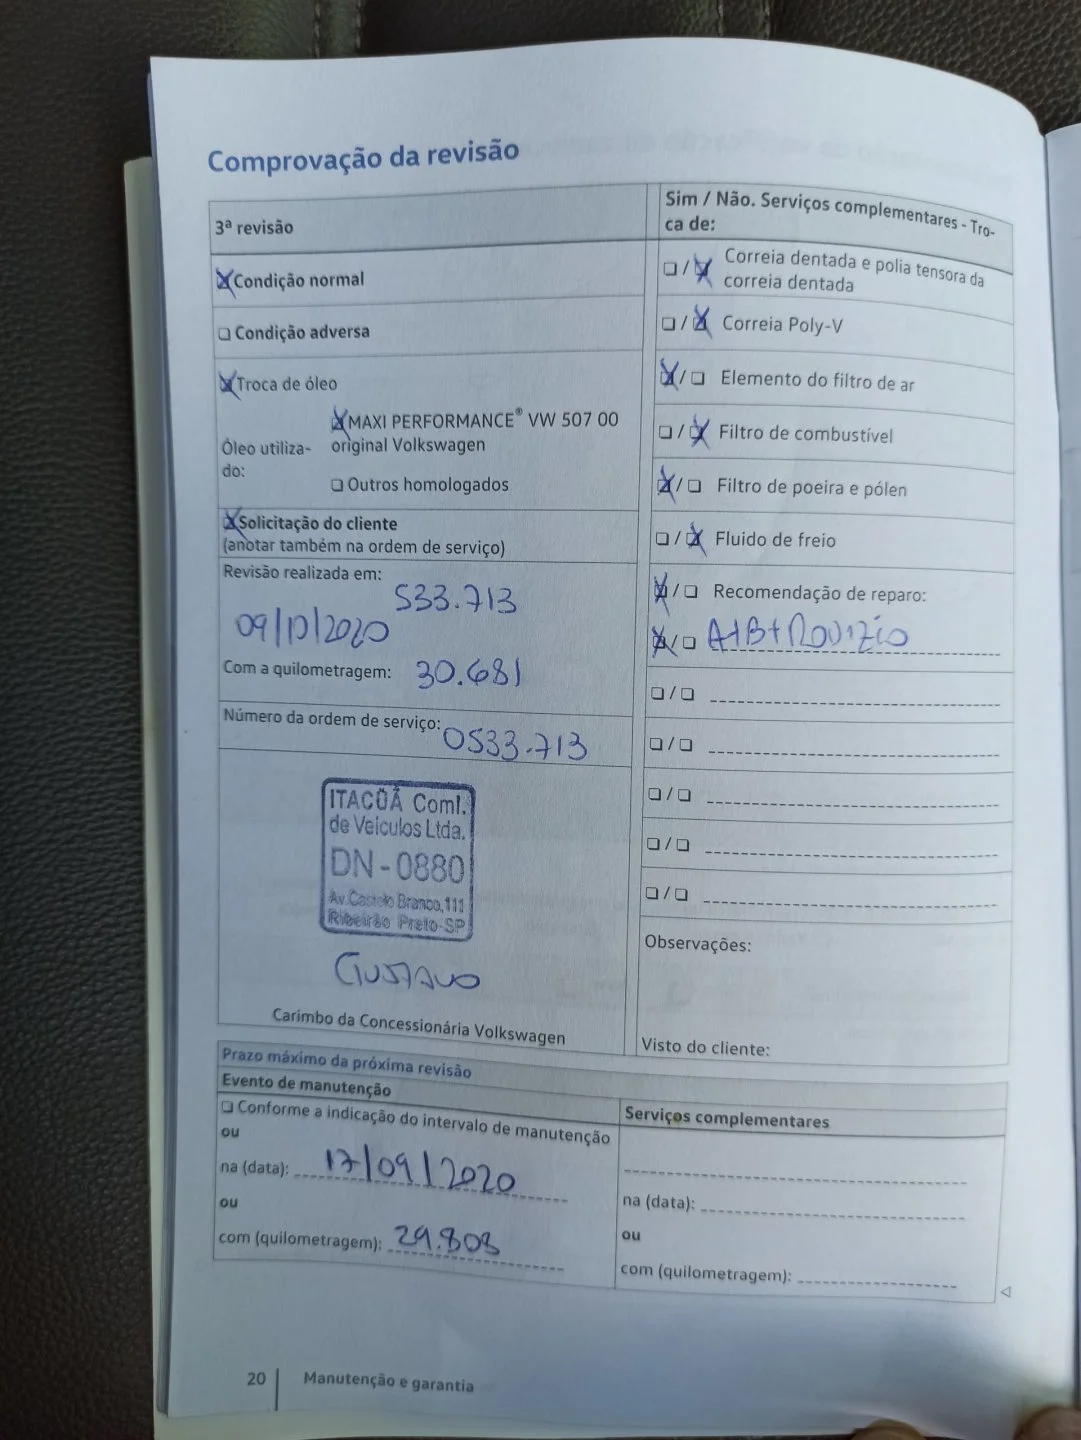 Comprovação da revisão
3ª revisão
Condição normal
❏ Condição adversa
Troca de óleo
MAXI PERFORMANCE® VW 507 00
Óleo utiliza- original Volkswagen
do:
❏ Outros homologados
Solicitação do cliente
(anotar também na ordem de serviço)
Revisão realizada em:
533.713
09/10/2020
Com a quilometragem: 30.681
Número da ordem de serviço: 0533.713
ITACUÃ Coml.
de Veiculos Ltda.
DN - 0880
Av. Castelo Branco, 111
Ribeirão Preto-SP
GUSTAVO
Carimbo da Concessionária Volkswagen
Sim / Não. Serviços complementares - Tro-
ca de:
❏ / Correia dentada e polia tensora da
correia dentada
❏ / Correia Poly-V
/ ❏ Elemento do filtro de ar
❏ / Filtro de combustível
/ ❏ Filtro de poeira e pólen
❏ / Fluido de freio
/ ❏ Recomendação de reparo:
/ ❏ A+B+Rodizio
❏ / ❏
❏ / ❏
❏ / ❏
❏ / ❏
❏ / ❏
Observações:
Visto do cliente:
Prazo máximo da próxima revisão
Evento de manutenção
❏ Conforme a indicação do intervalo de manutenção
ou
na (data): 17/09/2020
ou
com (quilometragem): 29.808
Serviços complementares
na (data):
ou
com (quilometragem):
20 Manutenção e garantia